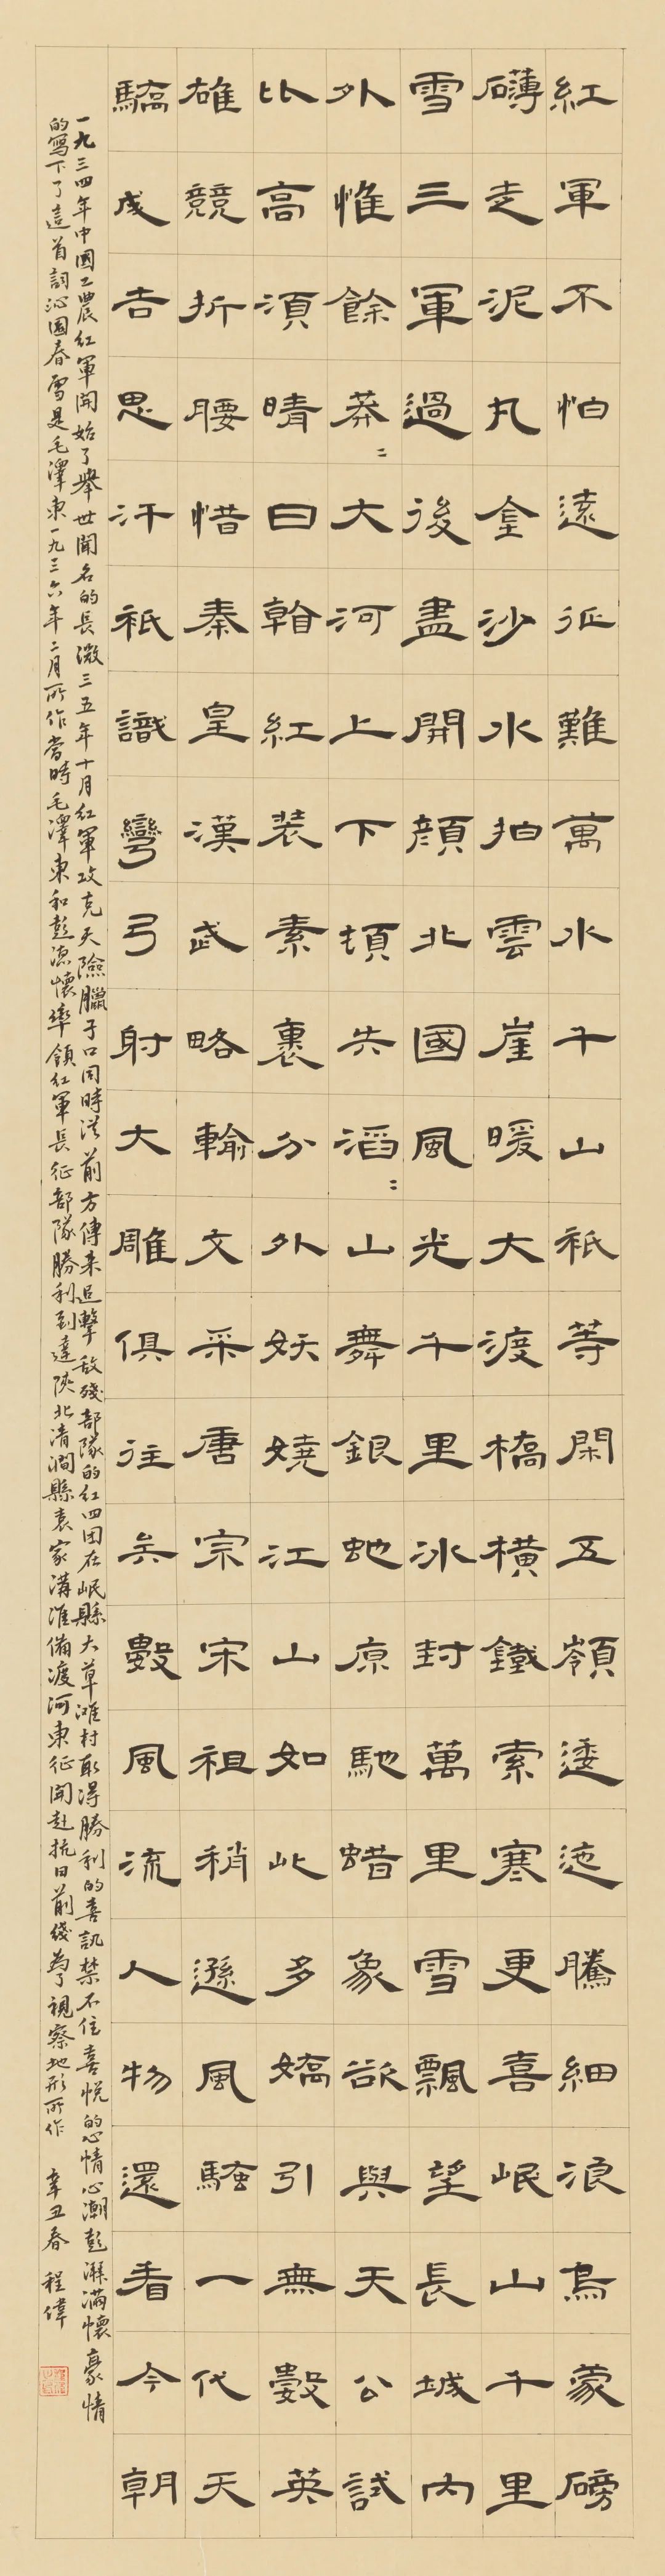 紅軍不怕遠征難萬水千山祇等閑五嶺逶迤騰細浪烏蒙磅
礴走泥丸金沙水拍雲崖暖大渡橋橫鐵索寒更喜岷山千里
雪三軍過後盡開顔北國風光千里冰封萬里雪飄望長城内
外惟餘莽〻大河上下頓失滔〻山舞銀蛇原馳蜡象欲與天公試
比高須晴日看紅裝素裹分外妖嬈江山如此多嬌引無數英
雄競折腰惜秦皇漢武略輸文采唐宗宋祖稍遜風騷一代天
驕成吉思汗祇識彎弓射大雕俱往矣數風流人物還看今朝
一九三四年中國工農紅軍開始了舉世聞名的長激三五年十月紅軍攻克天險臘子口同時從前方傳来追擊敌殘部隊的紅四团在岷縣大草灘村取得勝利的喜訊禁不住喜悦的心情心潮彭湃滿懷豪情
的寫下了這首詞沁園春雪是毛澤東一九三六年二月所作當時毛澤東和彭德懷率領紅軍長征部隊勝利到達陝北清澗縣袁家溝准備渡河東征開赴抗日前綫為了視察地形所作 辛丑春 程偉